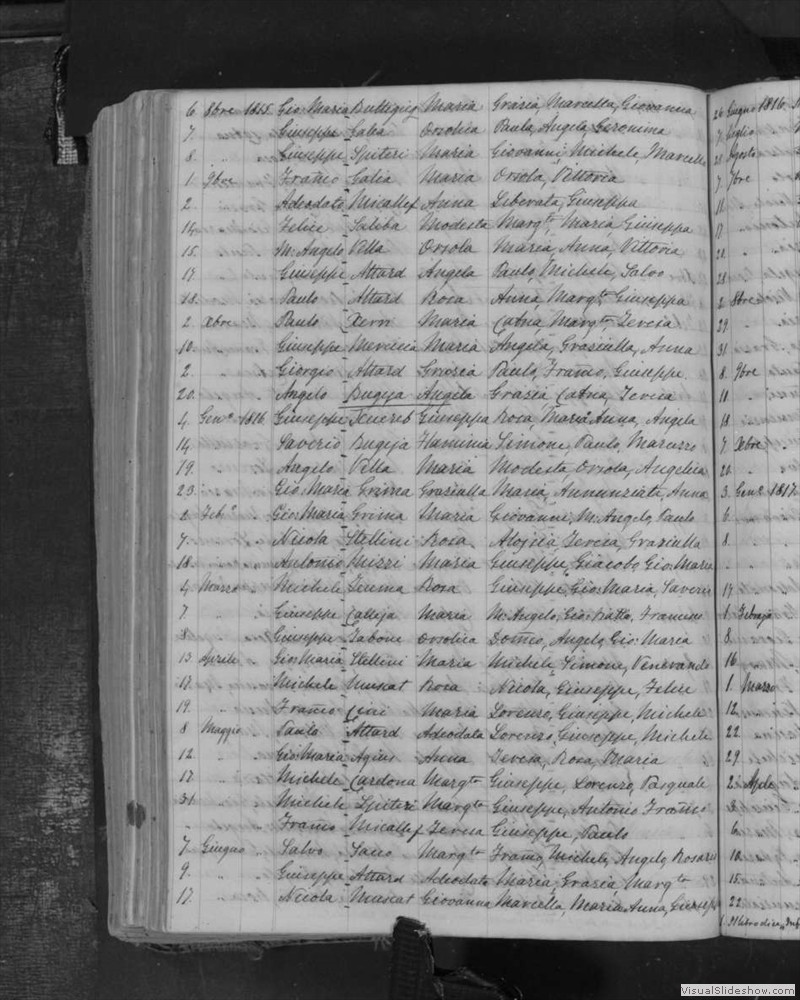 6 8bre 1815 Gio: Maria Buttigieg Maria Grazia, Marcella, Giovanna
7 " " Giuseppe Galia Orsolica Paula, Angela, Geronima
8 " " Giuseppe Spiteri Maria Giovanni, Michele, Marcello
1 9bre " Franco Galia Maria Orsola, Vittoria
2 " " Adeodato Micallef Anna Liberata, Giuseppa
14 " " Felice Saliba Modesta Margta, Maria, Giuseppa
15 " " M. Angelo Vella Orsola Maria, Anna, Vittoria
17 " " Giuseppe Attard Angela Paulo, Michele, Salvo
18 " " Paulo Attard Rosa Anna, Margta, Giuseppa
2 Xbre " Paulo Xerri Maria Catna, Margta, Teresa
10 " " Giuseppe Mercieca Maria Angela, Graziulla, Anna
2 " " Giorgio Attard Grazia Paulo, Franco, Giuseppe
20 " " Angelo Bugeja Angela Grazia, Catna, Teresa
4 Genº 1816 Giuseppe Xuereb Giuseppa Rosa, Maria Anna, Angela
14 " " Saverio Bugeja Flaminia Simone, Paulo, Maruzzo
19 " " Angelo Vella Maria Modesta, Orsola, Angelica
23 " " Gio: Maria Grima Graziulla Maria, Annunziata, Anna
2 Febº " Gio: Maria Grima Maria Giovanni, M. Angelo, Paulo
7 " " Nicola Stellini Rosa Aloisia, Teresa, Graziulla
18 " " Antonio Mizzi Maria Giuseppe, Giacobo, Gio: Maria
4 Marzo " Michele Teuma Rosa Giuseppe, Gio: Maria, Saverio
7 " " Giuseppe Calleja Maria M. Angelo, Gio: Batta, Francesco
8 " " Giuseppe Tabone Orsolica Domco, Angelo, Gio: Maria
13 Aprile " Gio: Maria Stellini Maria Michele, Simone, Venerando
17 " " Michele Muscat Rosa Nicola, Giuseppe, Felice
19 " " Franco Cini Maria Lorenzo, Giuseppe, Michele
8 Maggio " Paulo Attard Adeodata Lorenzo, Giuseppe, Michele
12 " " Gio: Maria Agius Anna Teresa, Rosa, Maria
17 " " Michele Cardona Margta Giuseppe, Lorenzo, Pasquale
31 " " Michele Spiteri Margta Giuseppe, Antonio, Franco
" " " Franco Micallef Teresa Giuseppe, Paulo
7 Giugno " Salvo Margta Franco, Michele, Angelo, Rosario
9 " " Giuseppe Attard Adeodata Maria, Grazia, Margta
17 " " Nicola Muscat Giovanna Marcella, Maria Anna, Giuseppa
26 Giugno 1816
7 Luglio
21 Agosto
7 7bre
11 "
17 "
21 "
28 "
2 8bre
29 "
31 "
8 9bre
10 "
18 "
7 Xbre
20 "
3 Genº 1817
6 "
8 "
" "
17 "
1 Febrajo
8 "
16 "
1 Marzo
12 "
22 "
29 "
2 Aple
3 "
6 "
10 "
15 "
22 "
VisualSlideshow.com